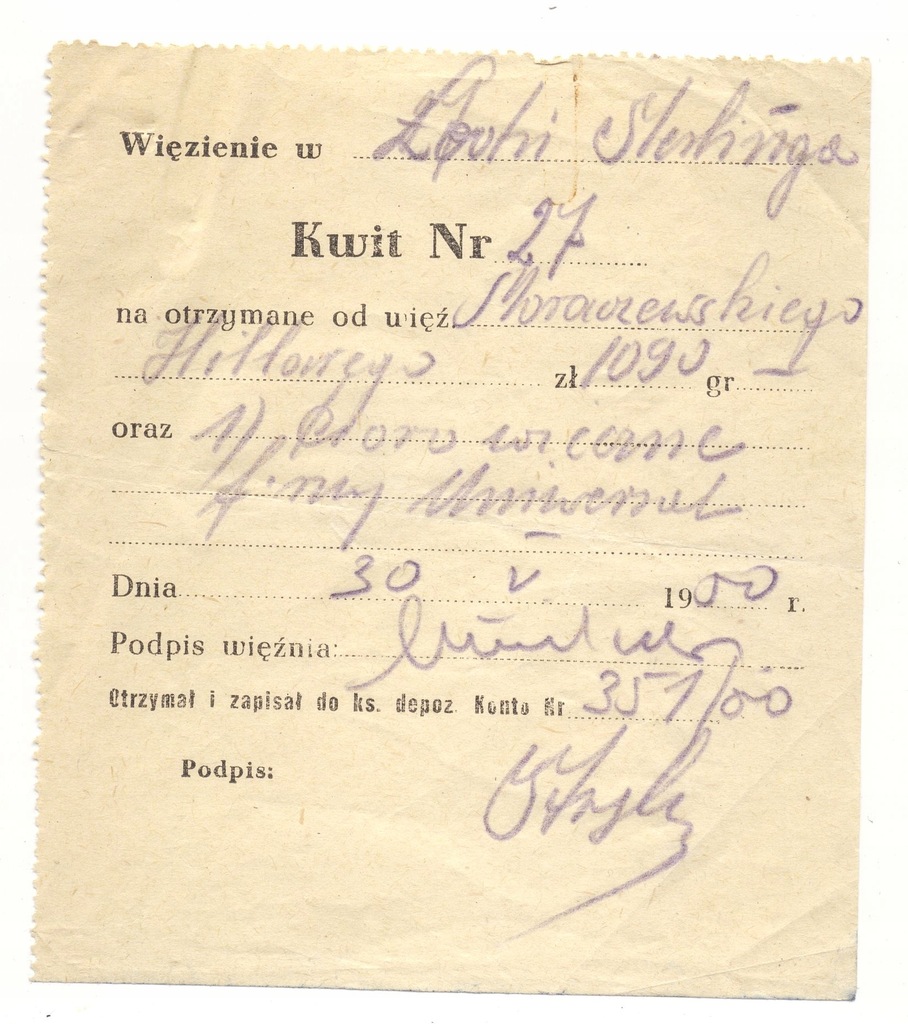 Więzienie w Łodzi Sterlinga
Kwit Nr 27
na otrzymane od więź. Moraczewskiego
zł. 1090 gr. —
oraz 1) Pioro wieczne
firmy Uniwersal
Dnia 30 V 1950 r.
Podpis więźnia:
Otrzymał i zapisał do ks. depoz. Konto Nr 351/50
Podpis: